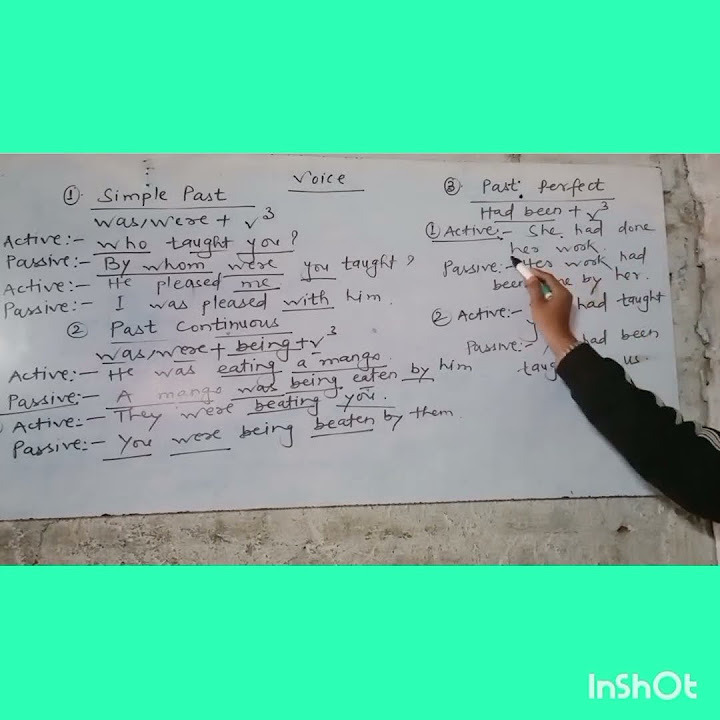 Voice
① Simple Past
was/were + v³
Active:- who taught you?
Passive:- By whom were you taught?
Active:- He pleased me
Passive:- I was pleased with him.
② Past Continuous
was/were + being + v³
Active:- He was eating a mango.
Passive:- A mango was being eaten by him
Active:- They were beating you.
Passive:- You were being beaten by them.
③ Past Perfect
Had been + v³
① Active:- She had done
her work.
Passive:- Her work had
been by her.
② Active:- had taught
Passive:- had been
us.
InShOt